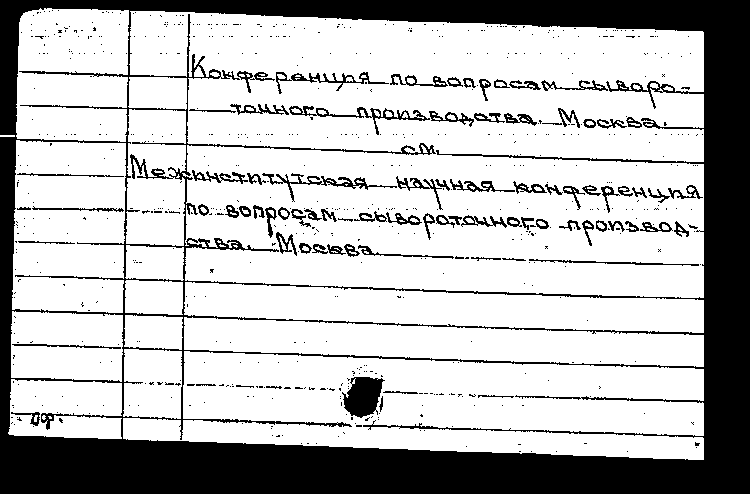 Конференция по вопросам сыворо-
точного производства. Москва.
см.
Межинститутская научная конференция
по вопросам сывороточного производ-
ства. Москва.